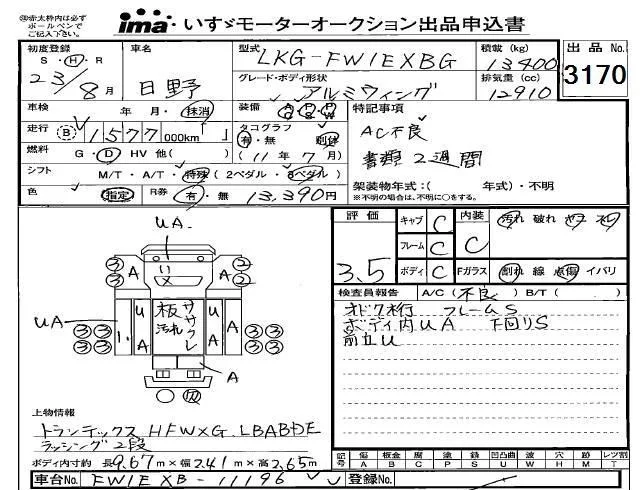 ㊟赤太枠内は必ず
ボールペンで
ご記入下さい。
ima いすゞモーターオークション出品申込書
初度登録 車名 型式 LKG-FW1EXBG 積載 (kg) 13400 出品 No. 3170
S・H・R 23/8月 日野 グレード・ボディ形状 アルミウィング 排気量 (cc) 12910
車検 年 月・抹消 装備 特記事項
走行 B 1577 000km タコグラフ 有・無 AC不良
燃料 G・D HV 他( ) (11年7月) 書類2週間
シフト M/T・A/T・特殊 (2ペダル・3ペダル) 架装物年式:( 年式)・不明
※不明の場合は、不明に○をする。
色 指定 R券 有・無 13,390円
評価 3.5 キャブ C 内装 C 汚れ 破れ
フレーム C
ボディ C Fガラス 割れ 線 点傷 イバリ
検査員報告 A/C(不良) B/T( )
フレームS
ボディ内UA 下回りS
前立U
UA.
③ A A ②
③ ②
UA 1. U A 板 汚れ ササクレ U A
③③ ③③
③③ ③③
A
上物情報
トランテックス HFWXG.LBABDE
ラッシング2段
ボディ内寸約 長9.67m×幅2.41m×高2.65m
記号 傷 A 板金 B 腐 C 塗 P 錆 S 凹凸曲 U 波 W 穴 H 跡 M レツ割 T
車台No. FW1EXB-11196 登録No.